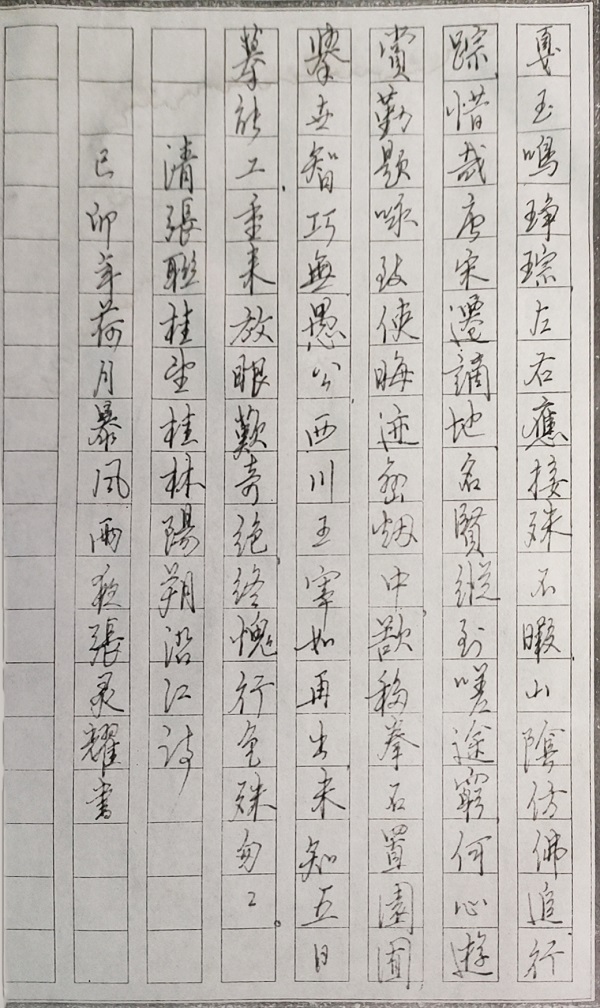 戛玉鳴琤琮左右應接殊不暇山陰仿佛追行
踪惜哉唐宋遷謫地名賢縱到嗟途窮何心遊
賞勤題咏致使晦迹蠻烟中歡移拳石置園囿
舉世智巧無愚公西川王宰如再出未知五日
摹能工重來放眼歎奇絶終愧行色殊匆〻
清張聯桂望桂林陽朔沿江詩
己卯年荷月暴風雨夜張灵耀書